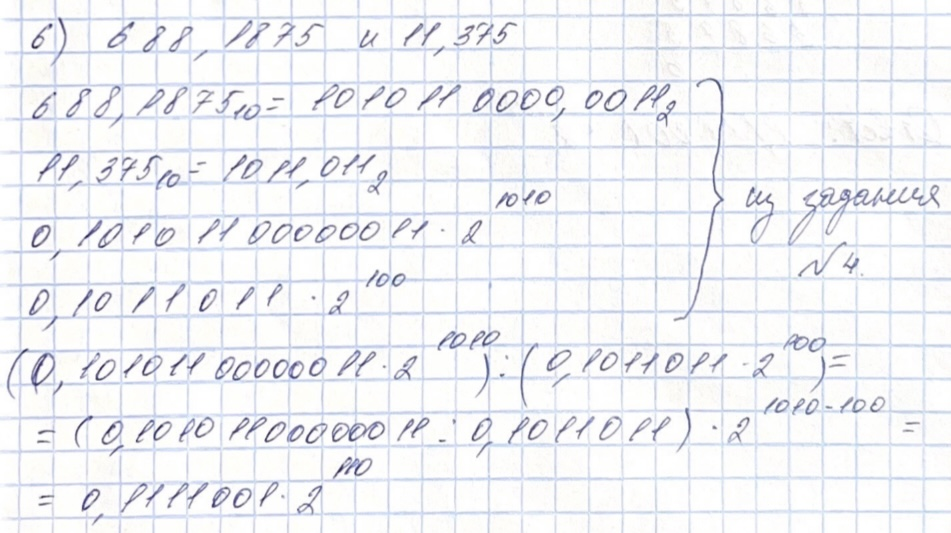 6) 688,1875 и 11,375
688,1875₁₀ = 1010110000,0011₂
11,375₁₀ = 1011,011₂
0,10101100000011 · 2¹⁰¹⁰
0,1011011 · 2¹⁰⁰
из задания
№4.
(0,10101100000011 · 2¹⁰¹⁰) : (0,1011011 · 2¹⁰⁰) =
= (0,10101100000011 : 0,1011011) · 2¹⁰¹⁰⁻¹⁰⁰ =
= 0,1111001 · 2¹¹⁰